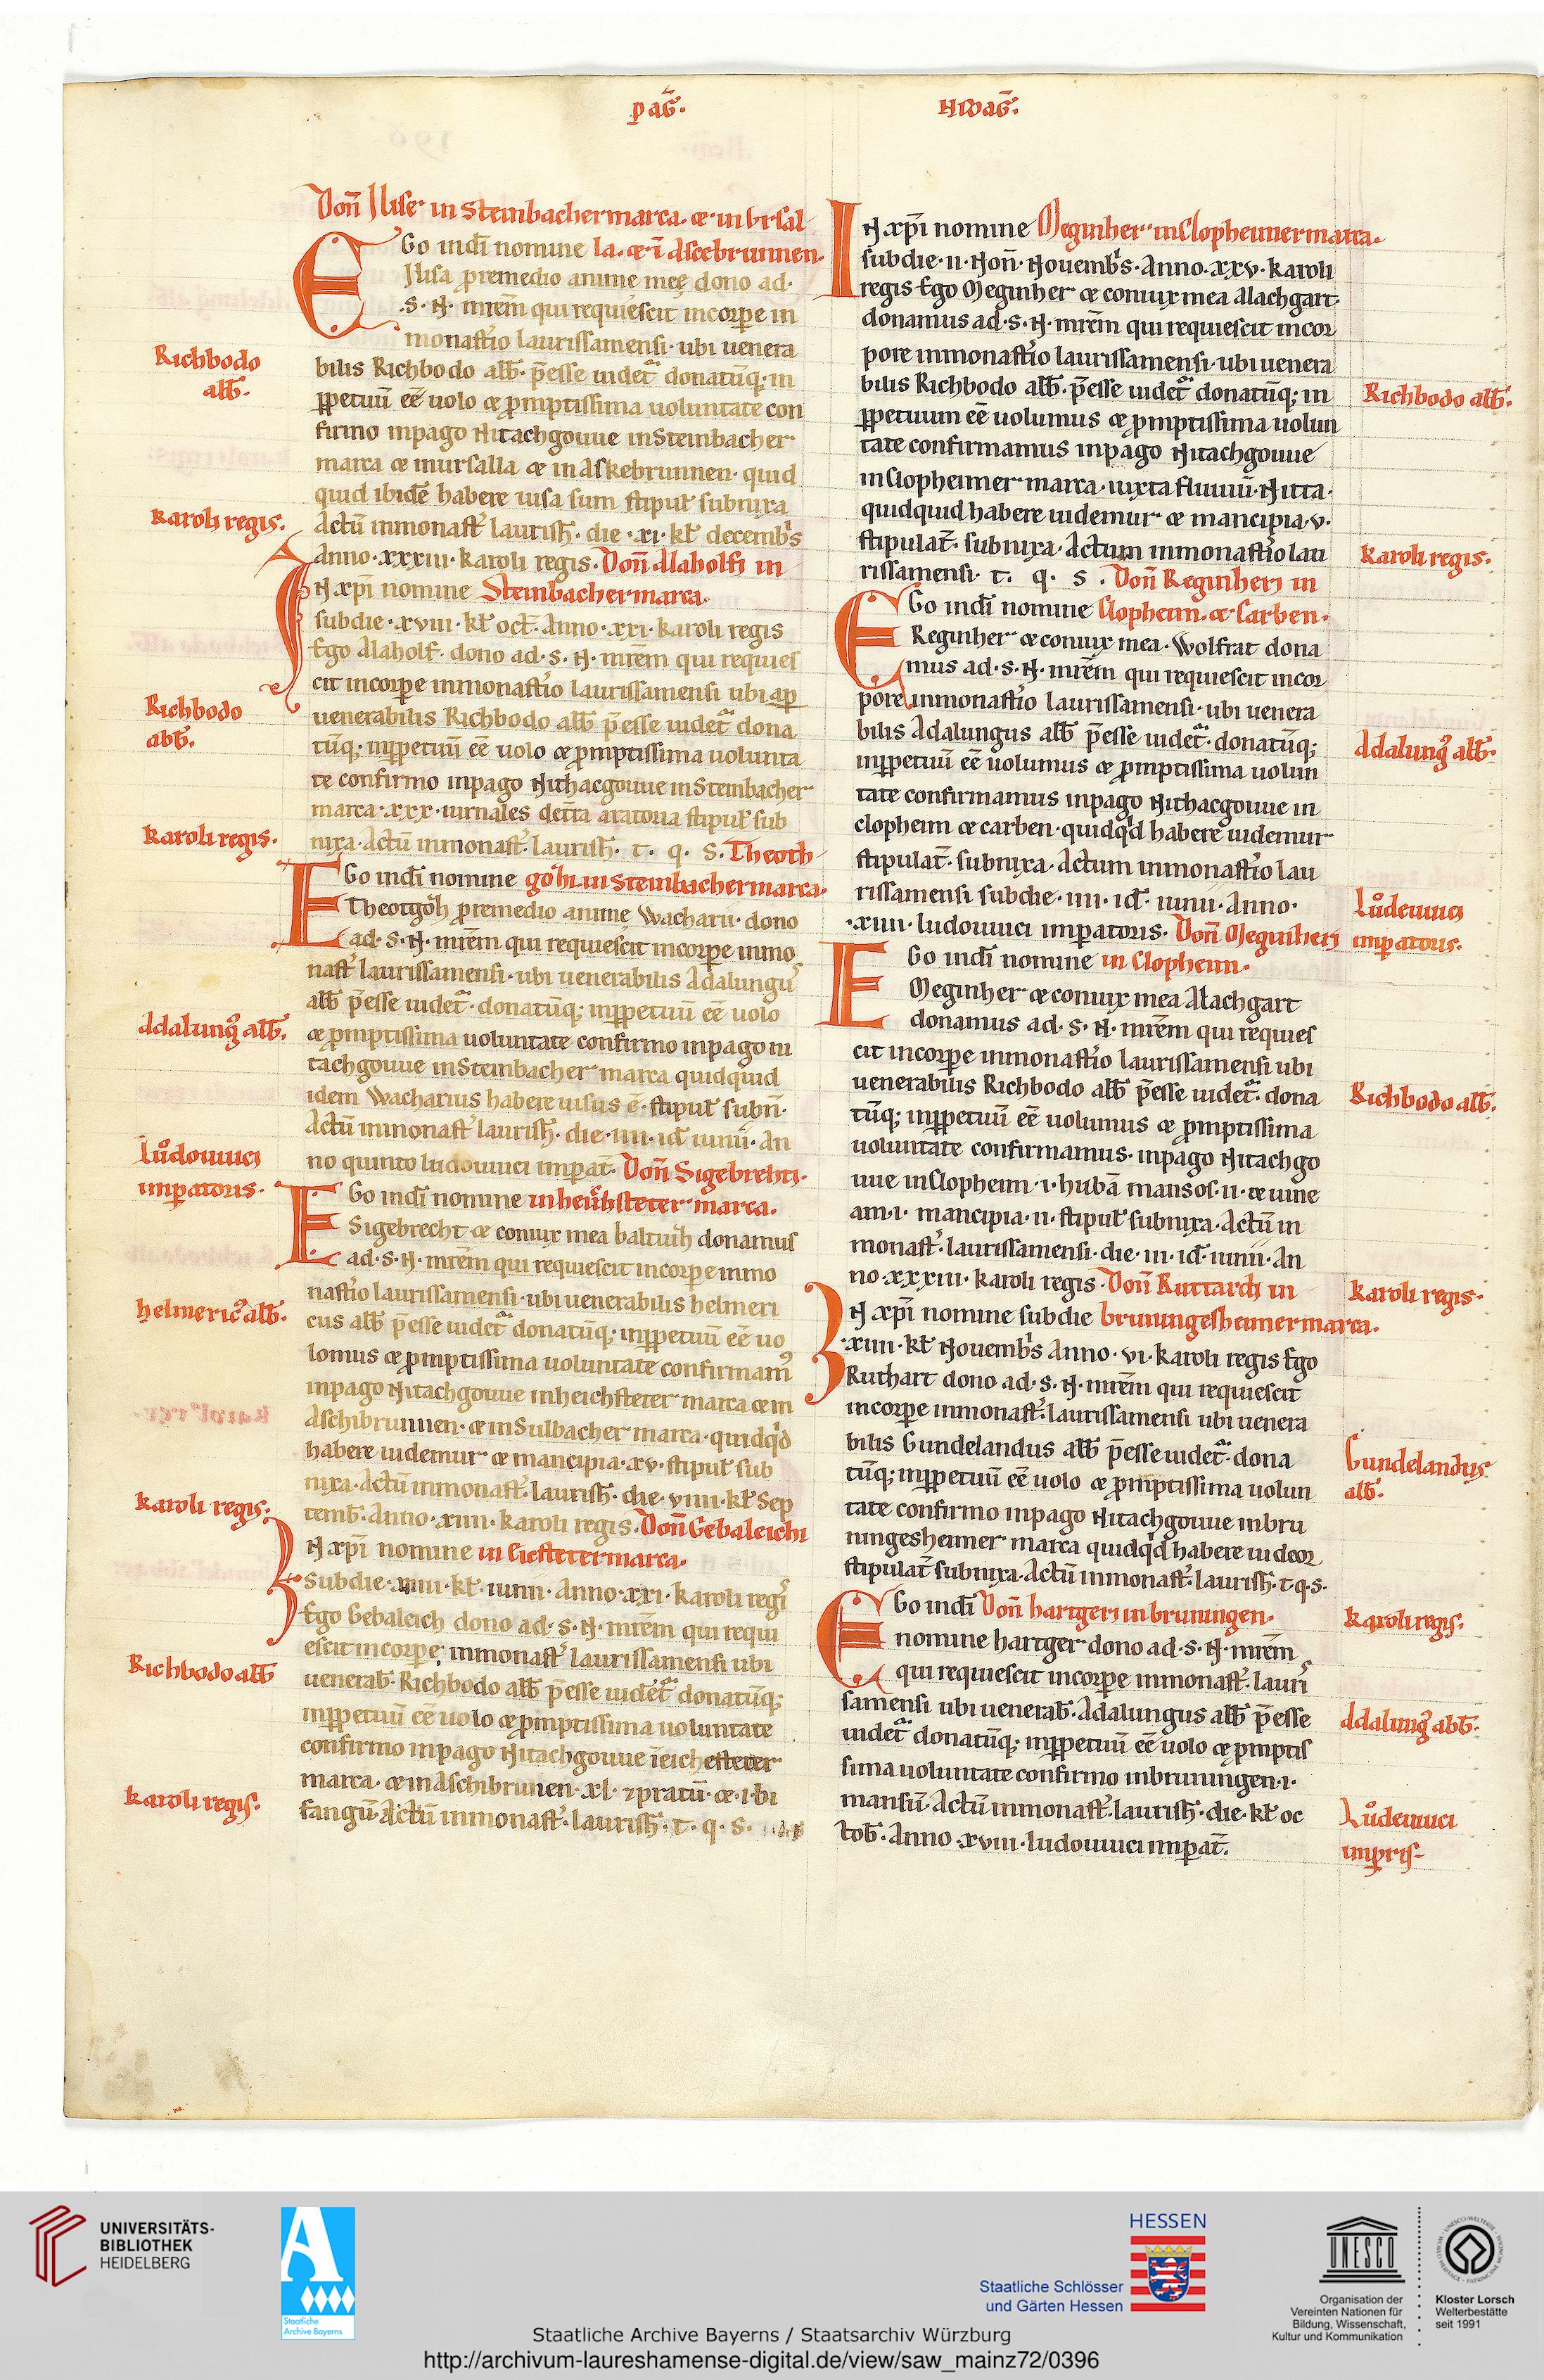 pag̅.
nwag̅.
Don̅ Ilise in Steinbacher marca. et in Vrsal
Ego in dei̅ nomine la. et i̅ Ascebrunnen.
Ilisa p̱remedio anime meę dono ad.
.S. N. mr̅em qui requiescit in corp̱e in
monast̓io laurissamensi. ubi uenera
bilis Richbodo abb̅. p̅esse uidet᷑ donatu̅q; in
p̱petuu̅ ee̅ uolo et p̱mptissima uoluntate con
firmo in pago Nitachgouue in Steinbacher
marca et in ursalla et in Askebrunnen. quid
quid ibide̅ habere uisa sum stipul̅ subnixa
Actu̅ in monast̓ laurish̅. die .xi. kl̅ decemb̓s
Anno .xxxiii. karoli regis. Don̅ Alaholfi in
N xp̅i nomine Steinbacher marca.
sub die .xviii. kl̅ oct̅. Anno .xxi. karoli regis
Ego Alaholf. dono ad .s. N. mr̅em qui requies
cit in corp̱e in monast̓io laurissamensi ubi ap̱
uenerabilis Richbodo abb̅ p̅esse uidet᷑ dona
tu̅q; in p̱petuu̅ ee̅ uolo et p̱mptissima uolunta
te confirmo in pago Nithacgouue in Steinbacher
marca .xxx. iurnales de tr̅a aratoria stipul̅ sub
nixa. Actu̅ in monast̓. laurish̅. t. q. s. Theoth
Ego in dei̅ nomine gohi. in Steinbacher marca.
Theotgoh p̱remedio anime Wacharii. dono
ad .S. N. mr̅em qui requiescit in corp̱e in mo
nast̓ laurissamensi. ubi uenerabilis Adalungus
abb̅ p̅esse uidet᷑. donatu̅q; in p̱petuu̅ ee̅ uolo
et p̱mptissima uoluntate confirmo in pago ni
tachgouue in Steinbacher marca quidquid
idem Wacharius habere uisus e̅. stipul̅ subn̅.
Actu̅ in monast̓ laurish̅. die .iiii. id̅ iunii. An
no quinto ludouuici imp̱at̅. Don̅ Sigebrehti.
Ego in dei̅ nomine in heichsteter marca.
Sigebrecht et coniux mea baltuuih donamus
ad .S. N. mr̅em qui requiescit in corp̱e in mo
nast̓io laurissamensi. ubi uenerabilis helmeri
cus abb̅ p̅esse uidet᷑ donatu̅q; in p̱petuu̅ ee̅ uo
lomus et p̱mptissima uoluntate confirmam᷒
in pago Nitachgouue in heichsteter marca et in
Aschibrunnen. et in Sulbacher marca. quidq̓d
habere uidemur et mancipia .xv. stipul̅ sub
nixa. Actu̅ in monast̓. laurish̅. die .viiii. kl̅ Sep
temb̅. Anno .xiiii. karoli regis. Don̅ Gebaleichi
N xp̅i nomine in Eicstetermarca.
Sub die .xiiii. kl̅. iunii. Anno .xxi. karoli regis
Ego Gebaleich dono ad .S. N. mr̅em qui requi
escit in corp̱e in monast̓ laurissamensi ubi
uenerab̅. Richbodo abb̅ p̅esse uidet᷑ donatu̅q;
in p̱petuu̅ ee̅ uolo et p̱mptissima uoluntate
confirmo in pago Nitachgouue i̅ eichesteter
marca. et in Aschibrunen .xl. ⁊ pratu̅. et .i. bi
fangu̅. Actu̅ in monast̓. laurish̅. t. q. s.
Richbodo
abb̅.
karoli regis.
Richbodo
abb̅.
karoli regis.
Adalung᷒ abb̅.
Lůdouuici
imp̱atoris.
helmeric᷒ abb̅.
karoli regis.
Richbodo abb̅
karoli regis.
IN xp̅i nomine Meginher in Clopheimer marca.
sub die .ii. Non̅. Nouemb̓s. Anno .xxv. karoli
regis Ego Meginher et coniux mea Alachgart
donamus ad .S. N. mr̅em qui requiescit in cor
pore in monast̓io laurissamensi. ubi uenera
bilis Richbodo abb̅. p̅esse uidet᷑ donatu̅q; in
p̱petuum ee̅ uolumus et p̱mptissima uolun
tate confirmamus in pago Nitachgouue
in Clopheimer marca. iuxta fluuiu̅. Nitta.
quidquid habere uidemur et mancipia .v.
stipulat̅. subnixa. Actum in monast̓io lau
rissamensi. t. q. s. Don̅ Reginheri in
Ego in dei̅ nomine Clopheim. et Carben.
Reginher et coniux mea. Wolfrat dona
mus ad .S. N. mr̅em qui requiescit in cor
pore in monast̓io laurissamensi. ubi uenera
bilis Adalungus abb̅ p̅esse uidet᷑. donatu̅q;
in p̱petuu̅ ee̅ uolumus et p̱mptissima uolun
tate confirmamus in pago Nithacgouue in
clopheim et carben. quidq̓d habere uidemur
stipulat̅. subnixa. Actum in monast̓io lau
rissamensi sub die .iiii. id̅. iunii. Anno.
.xiiii. ludouuici imp̱atoris. Don̅ Meginheri
Ego in dei̅ nomine in Clopheim.
Meginher et coniux mea Alachgart
donamus ad .S. N. mr̅em qui requies
cit in corp̱e in monast̓io laurissamensi ubi
uenerabilis Richbodo abb̅ p̅esse uidet᷑. dona
tu̅q; in p̱petuu̅ ee̅ uolumus et p̱mptissima
uoluntate confirmamus. in pago Nitachgo
uue in Clopheim .i. huba̅ mansos .ii. et uine
am .i. mancipia .ii. stipul̅ subnixa. Actu̅ in
monast̓. laurissamensi. die .iii. id̅ iunii. An
no .xxxiii. karoli regis. Don̅ Ruttardi in
N xp̅i nomine sub die bruningesheimer marca.
.xiiii. kl̅ Nouemb̓s Anno .vi. karoli regis Ego
Ruthart dono ad .S. N. mr̅em qui requiescit
in corp̱e in monast̓. laurissamensi ubi uenera
bilis Gundelandus abb̅ p̅esse uidet᷑. dona
tu̅q; in p̱petuu̅ ee̅ uolo et p̱mptissima uolun
tate confirmo in pago Nitachgouue in bru
ningesheimer marca quidq̓d habere uideor
stipulat̅ subnixa. Actu̅ in monast̓. laurish̅. t. q. s.
Ego in dei̅ Don̅ hartgeri in bruningen.
nomine hartger dono ad .S. N. mr̅em
qui requiescit in corp̱e in monast̓. lauris
samensi ubi uenerab̅. Adalungus abb̅ p̅esse
uidet᷑ donatu̅q; in p̱petuu̅ ee̅ uolo et p̱mptis
sima uoluntate confirmo in bruningen .i.
mansu̅. Actu̅ in monast̓. laurish̅. die. kl̅ oc
tob̅. Anno .xviii. ludouuici imp̱at̅.
Richbodo abb̅.
karoli regis.
Adalung᷒ abb̅.
Lůdeuuici
imp̱atoris.
Richbodo abb̅.
karoli regis.
Gundelandus
abb̅.
karoli regis.
Adalung᷒ abb̅.
Lůdeuuici
imp̱ris.
UNIVERSITÄTS-
BIBLIOTHEK
HEIDELBERG
A
Staatliche
Archive Bayerns
HESSEN
Staatliche Schlösser
und Gärten Hessen
UNESCO
Organisation der
Vereinten Nationen für
Bildung, Wissenschaft,
Kultur und Kommunikation
Kloster Lorsch
Welterbestätte
seit 1991
Staatliche Archive Bayerns / Staatsarchiv Würzburg
http://archivum-laureshamense-digital.de/view/saw_mainz72/0396